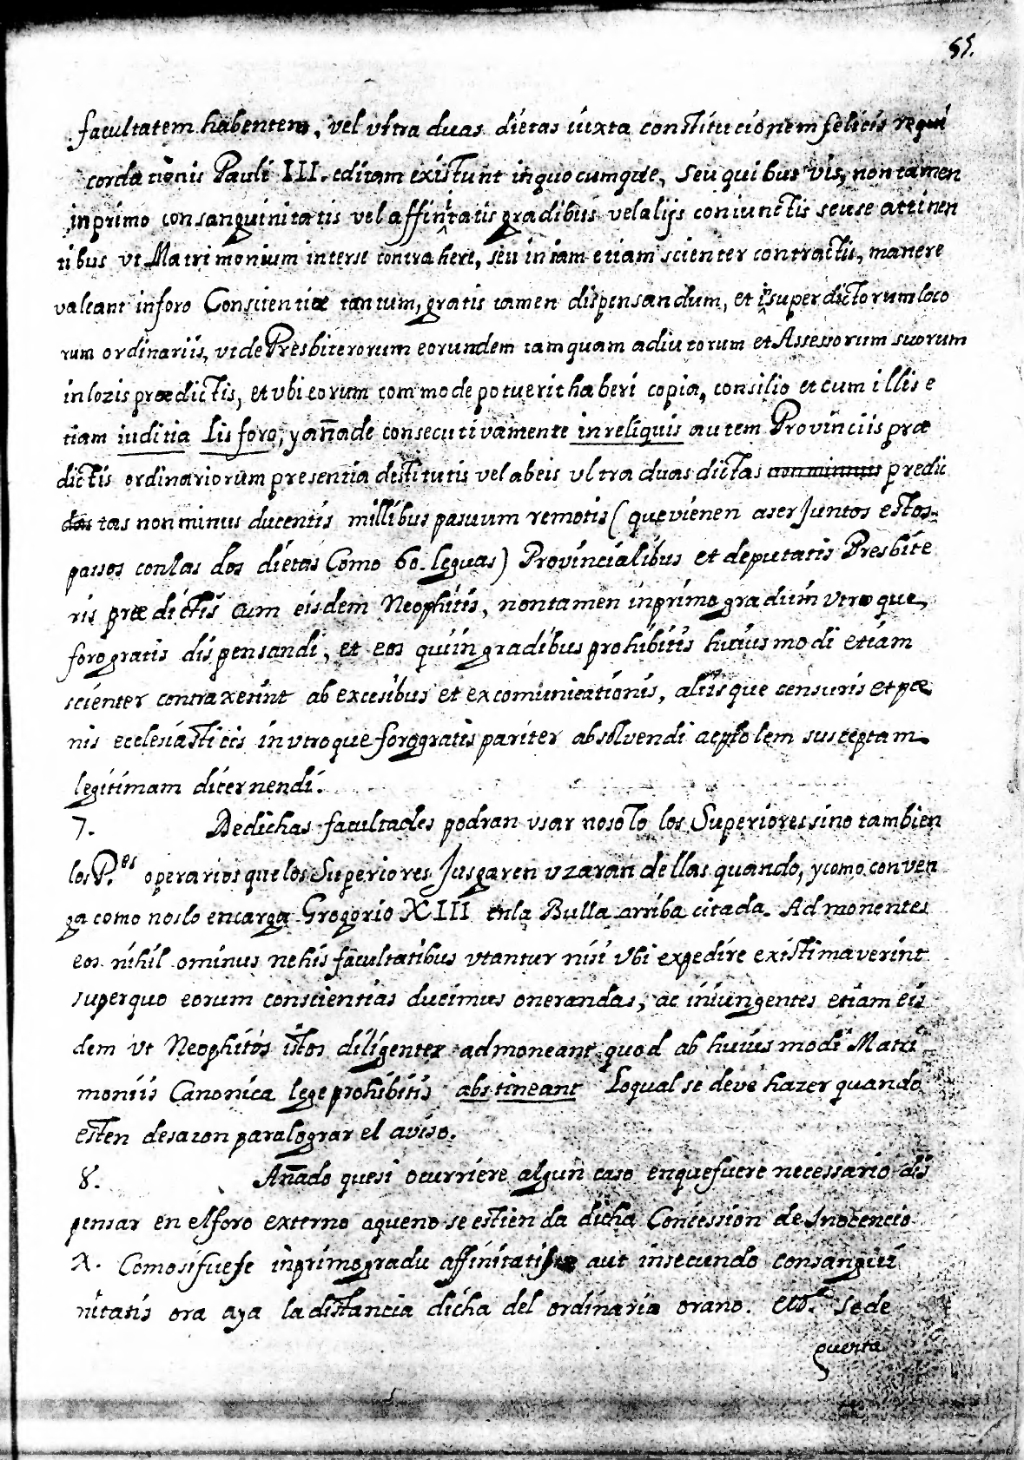 55.
facultatem habentem, vel vltra duas dietas iuxta constitucionem felicis requi
cordationis Pauli III. editam existunt inquocumque, Seu quibus vis, non tamen
in primo consanguinitatis vel affinitatis gradibus vel alijs coniunctis seu se attinen
tibus vt Matrimonium inter se contrahere, seu in iam etiam scienter contractis, manere
valeant in foro Conscientiæ tantum, gratis tamen dispensandum, et superdictorum loco
rum ordinariis, vt de Presbiterorum eorundem tamquam adiutorum et Assessorum suorum
in lozis prædictis, et vbi eorum commode potuerit haberi copia, consilio et cum illis e
tiam iuditia Lis foro, y añade consecutivamente in reliquis autem Provinciis præ
dictis ordinariorum presentia destitutis vel abeis vltra duas dictas non minus predic
das tas non minus ducentis millibus pasuum remotis (que vienen a ser Juntos estos
passos con las dos dietas Como 60. leguas) Provincialibus et deputatis Presbite
ris prædictis cum eisdem Neophitis, non tamen in primo gradium vtroque
foro gratis dispensandi, et eos qui in gradibus prohibitis huius modi etiam
scienter contraxerint ab excesibus et excomunicationis, aliis que censuris et pæ
nis ecclesiasticis in vtroque foro gratis pariter absolvendi ac prolem susceptam
legitimam dicernendi.
7. De dichas facultades podran vsar no solo los Superiores sino tambien
los P.es operarios que los Superiores Jusgaren vzaran dellas quando, y como conven
ga como nos lo encarga Gregorio XIII en la Bulla arriba citada. Admonentes
eos nihil ominus ne his facultatibus vtantur nisi vbi expedire existimaverint
super quo eorum conscientias ducimus onerandas, ac iniungentes etiam eis
dem vt Neophitos istos diligenter admoneant quod ab huius modi Matri
moniis Canonica lege prohibitis abstineant Loqual se deve hazer quando
esten desazon para lograr el aviso.
8. Añado que si ocurriere algun caso en que fuere necessario dis
pensar en el foro externo a que no se estienda dicha Concession de Inocencio
X. Como si fuese in primo gradu affinitatis aut in secundo consangui
nitatis ora aya la distancia dicha del ordinario ora no. Se de
quenta